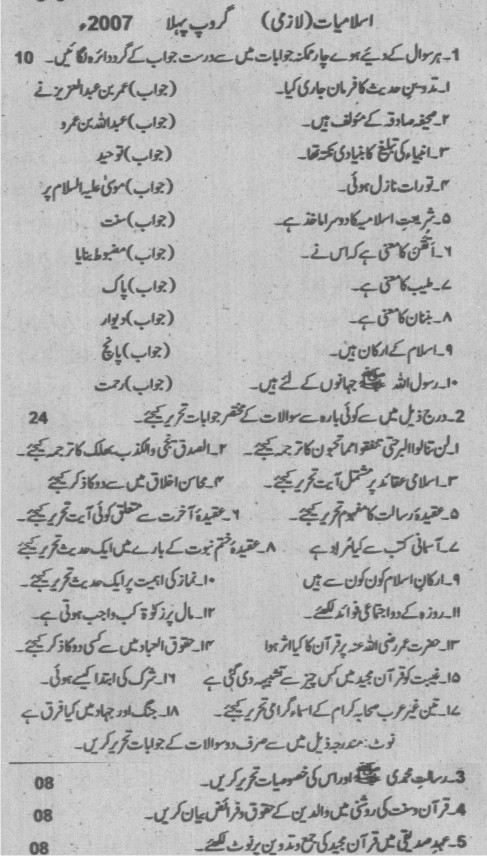 اسلامیات (لازمی) گروپ پہلا 2007ء
1۔ ہر سوال کے دیئے ہوے چار ممکنہ جوابات میں سے درست جواب کے گرد دائرہ لگائیں۔ 10
۱۔ تدوین حدیث کا فرمان جاری کیا۔ (جواب) عمر بن عبدالعزیز نے
۲۔ صحیفہ صادقہ کے مؤلف ہیں۔ (جواب) عبداللہ بن عمرو
۳۔ انبیاء کی تبلیغ کا بنیادی نکتہ تھا۔ (جواب) توحید
۴۔ تورات نازل ہوئی۔ (جواب) موسیٰ علیہ السلام پر
۵۔ شریعت اسلامیہ کا دوسرا ماخذ ہے۔ (جواب) سنت
۶۔ اَتْقَنَ کا معنی ہے کہ اس نے۔ (جواب) مضبوط بنایا
۷۔ طیب کا معنی ہے۔ (جواب) پاک
۸۔ بنیان کا معنی ہے۔ (جواب) دیوار
۹۔ اسلام کے ارکان ہیں۔ (جواب) پانچ
۱۰۔ رسول اللہ ﷺ جہانوں کے لئے ہیں۔ (جواب) رحمت
2۔ درج ذیل میں سے کوئی بارہ سے سوالات کے مختصر جوابات تحریر کیجئے۔ 24
۱۔ لن تنالوا البر حتی تنفقوا مما تحبون کا ترجمہ کیجئے۔ ۲۔ الصدق ینجی والکذب یھلک کا ترجمہ کیجئے۔
۳۔ اسلامی عقائد پر مشتمل آیت تحریر کیجئے۔ ۴۔ محاسن اخلاق میں سے دو کا ذکر کیجئے
۵۔ عقیدۂ رسالت کا مفہوم تحریر کیجئے۔ ۶۔ عقیدۂ آخرت سے متعلق کوئی آیت تحریر کیجئے۔
۷۔ آسمانی کتب سے کیا مُراد ہے ۸۔ عقیدۂ ختم نبوت کے بارے میں ایک حدیث تحریر کیجئے
۹۔ ارکانِ اسلام کون کون سے ہیں ۱۰۔ نماز کی اہمیت پر ایک حدیث تحریر کیجئے۔
۱۱۔ روزہ کے دو اجتماعی فوائد لکھئے۔ ۱۲۔ مال پر زکوٰۃ کب واجب ہوتی ہے۔
۱۳۔ حضرت عمر رضی اللہ عنہ پر قرآن کا کیا اثر ہوا ۱۴۔ حقوق العباد میں سے کسی دو کا ذکر کیجئے۔
۱۵۔ غیبت کو قرآن مجید میں کس چیز سے تشبیہہ دی گئی ہے ۱۶۔ شرک کی ابتدا کیسے ہوئی۔
۱۷۔ تین غیر عرب صحابہ کرام کے اسماء گرامی تحریر کیجئے۔ ۱۸۔ جنگ اور جہاد میں کیا فرق ہے
نوٹ: مندرجہ ذیل میں سے صرف دو سوالات کے جوابات تحریر کریں۔
3۔ رسالت محمدی ﷺ اور اس کی خصوصیات تحریر کریں۔ 08
4۔ قرآن وسنت کی روشنی میں والدین کے حقوق و فرائض بیان کریں۔ 08
5۔ عہدِ صدیقی میں قرآن مجید کی جمع و تدوین پر نوٹ لکھئے۔ 08